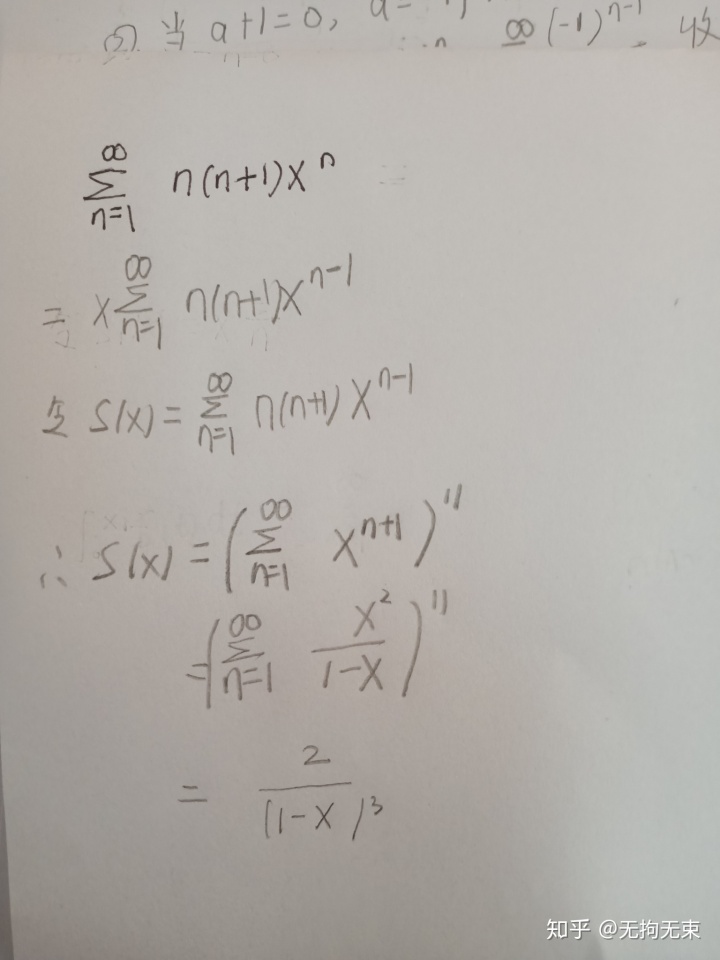 ② 当 a+1=0, a=
∞ (-1)^{n-1} 收
∑_{n=1}^{∞} n(n+1)x^n =
= x∑_{n=1}^{∞} n(n+1)x^{n-1}
S(x) = ∑_{n=1}^{∞} n(n+1)x^{n-1}
∴ S(x) = (∑_{n=1}^{∞} x^{n+1})''
= (∑_{n=1}^{∞} x^2/(1-x))''
= 2/(1-x)^3
知乎 @无拘无束